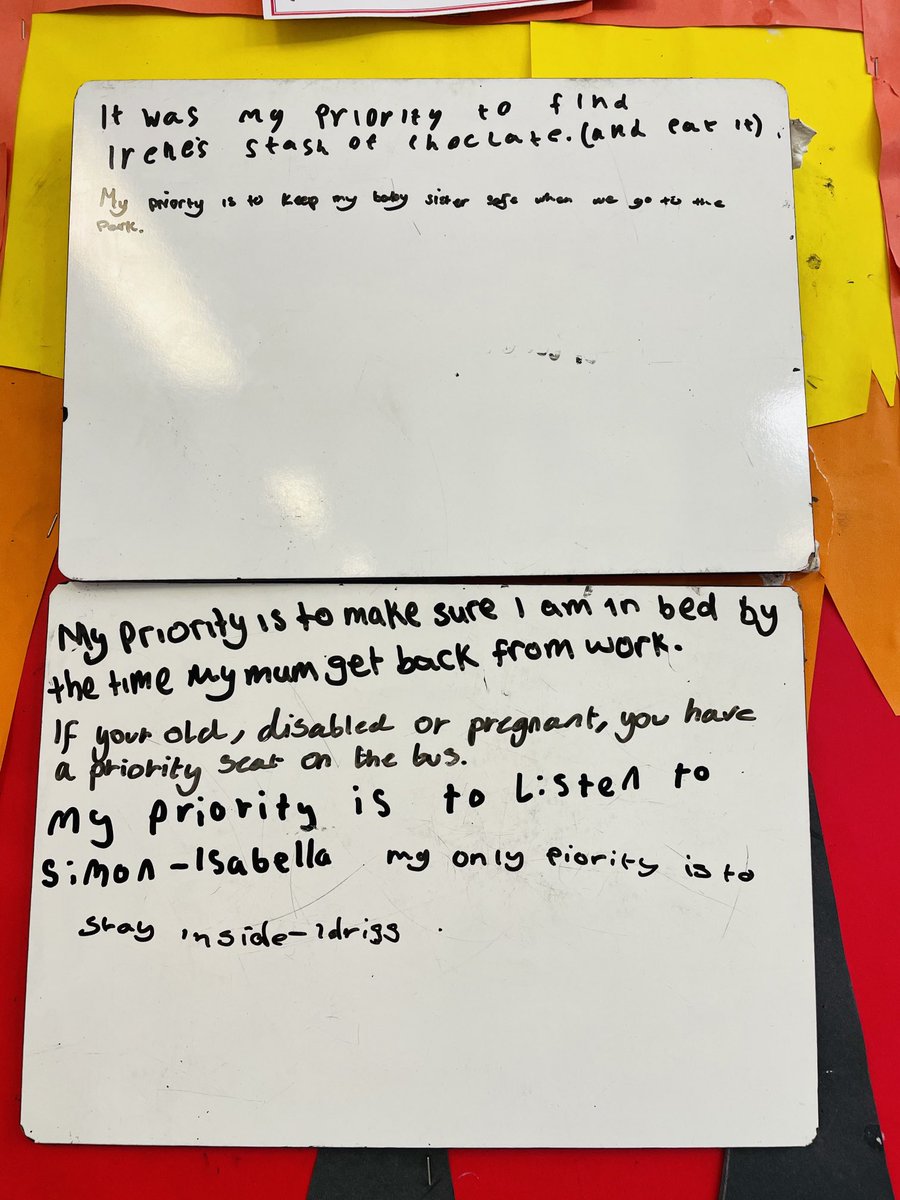 It was my priority to find
Irene's stash of choclate. (and eat it).
My priorty is to keep my baby sister safe when we go to the
park.
My priority is to make sure I am in bed by
the time My mum get back from work.
If your old, disabled or pregnant, you have
a priority seat on the bus.
My priority is to Listen to
Simon-Isabella my only piority is to
stay inside-Idriss